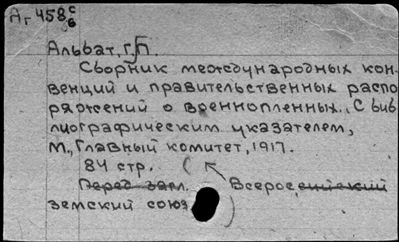 Аг 458 с/6
Альбат, Г.П.
Сборник международных кон-
венций и правительственных распо
ряжений о военнопленных., С биб
лиографическим указателем,
М., Главный комитет, 1917.
84 стр.
Перед загл. Всероссийский
земский союз